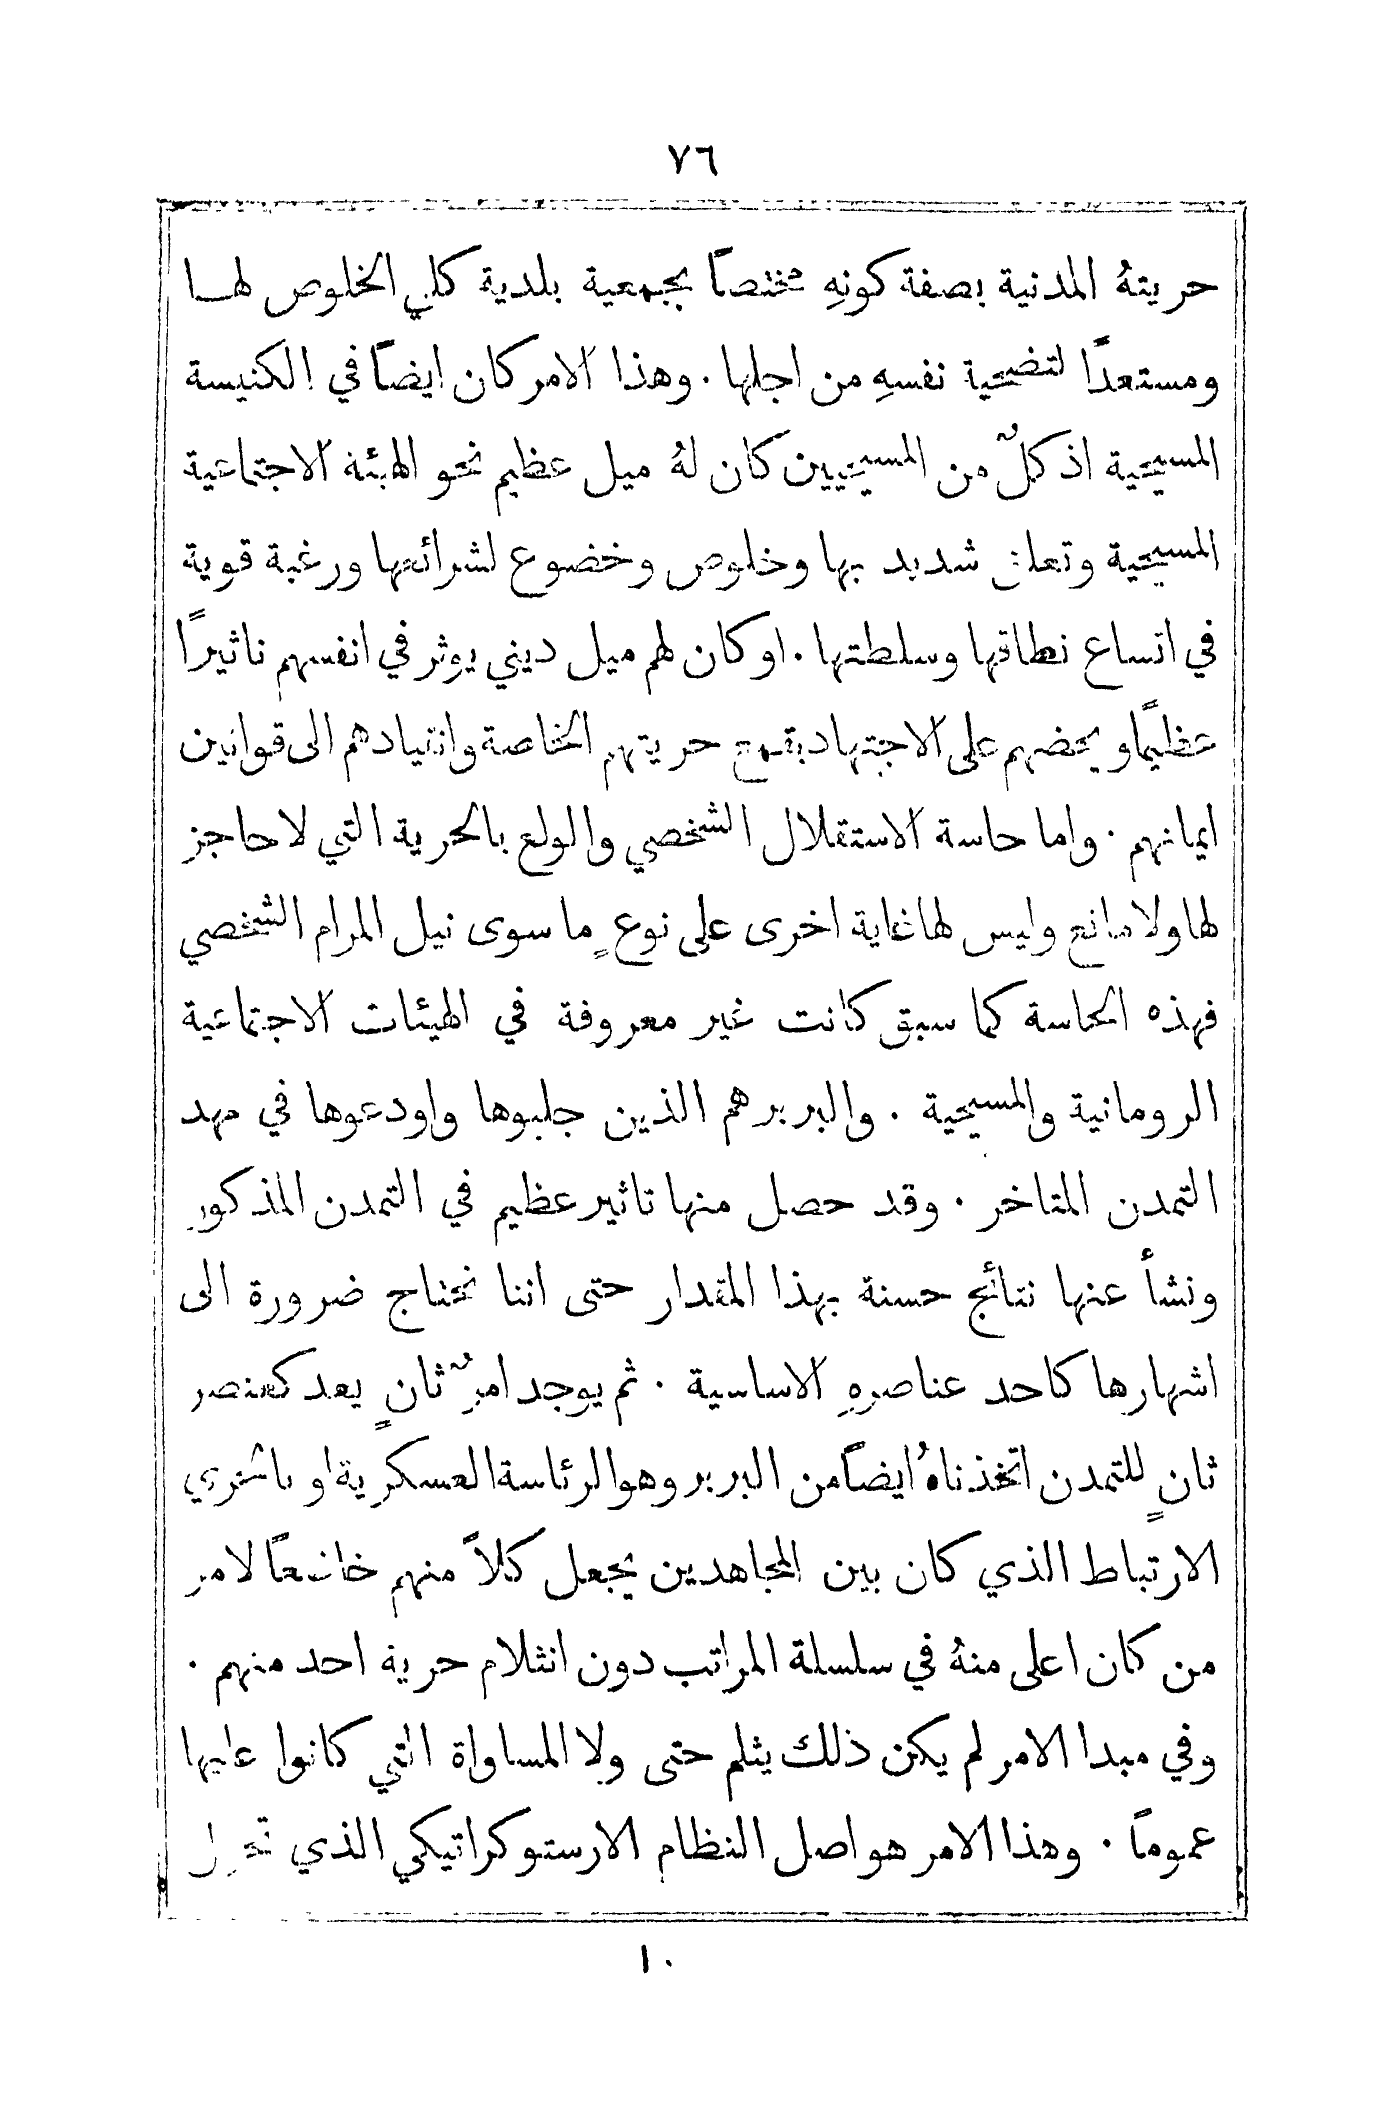 ٧٦
حريتهُ المدنية بصفة كونهِ مختصاً بجمعية بلدية كلي الخلوص لهـا
ومستعدًا لتضحية نفسهِ من اجلها . وهذا الامر كان ايضاً في الكنيسة
المسيحية اذ كلٌّ من المسيحيين كان لهُ ميل عظيم نحو الهيئة الاجتماعية
المسيحية وتعلق شديد بها وخلوص وخضوع لشرائعها ورغبة قوية
في اتساع نطاقها وسلطتها . او كان لهم ميل ديني يوثر في انفسهم تاثيرًا
عظيمًا ويحضهم على الاجتهاد بقمع حريتهم الخاصة وانقيادهم الى قوانين
ايمانهم . واما حاسة الاستقلال الشخصي والولع بالحرية التي لا حاجز
لها ولا مانع وليس لها غاية اخرى على نوعٍ ما سوى نيل المرام الشخصي
فهذه الحاسة كما سبق كانت غير معروفة في الهيئات الاجتماعية
الرومانية والمسيحية . والبربر هم الذين جلبوها واودعوها في مهد
التمدن المتاخر . وقد حصل منها تاثير عظيم في التمدن المذكور
ونشأ عنها نتائج حسنة بهذا المقدار حتى اننا نحتاج ضرورة الى
اشهارها كاحد عناصرهِ الاساسية . ثم يوجد امرٌ ثانٍ يعد كعنصر
ثانٍ للتمدن اتخذناهُ ايضاً من البربر وهو الرئاسة العسكرية او بالحري
الارتباط الذي كان بين المجاهدين يجعل كلاً منهم خاضعاً لامر
من كان اعلى منهُ في سلسلة المراتب دون انثلام حرية احد منهم .
وفي مبدا الامر لم يكن ذلك يثلم حتى ولا المساواة التي كانوا عليها
عموماً . وهذا الامر هو اصل النظام الارستوكراتيكي الذي تحول
١٠